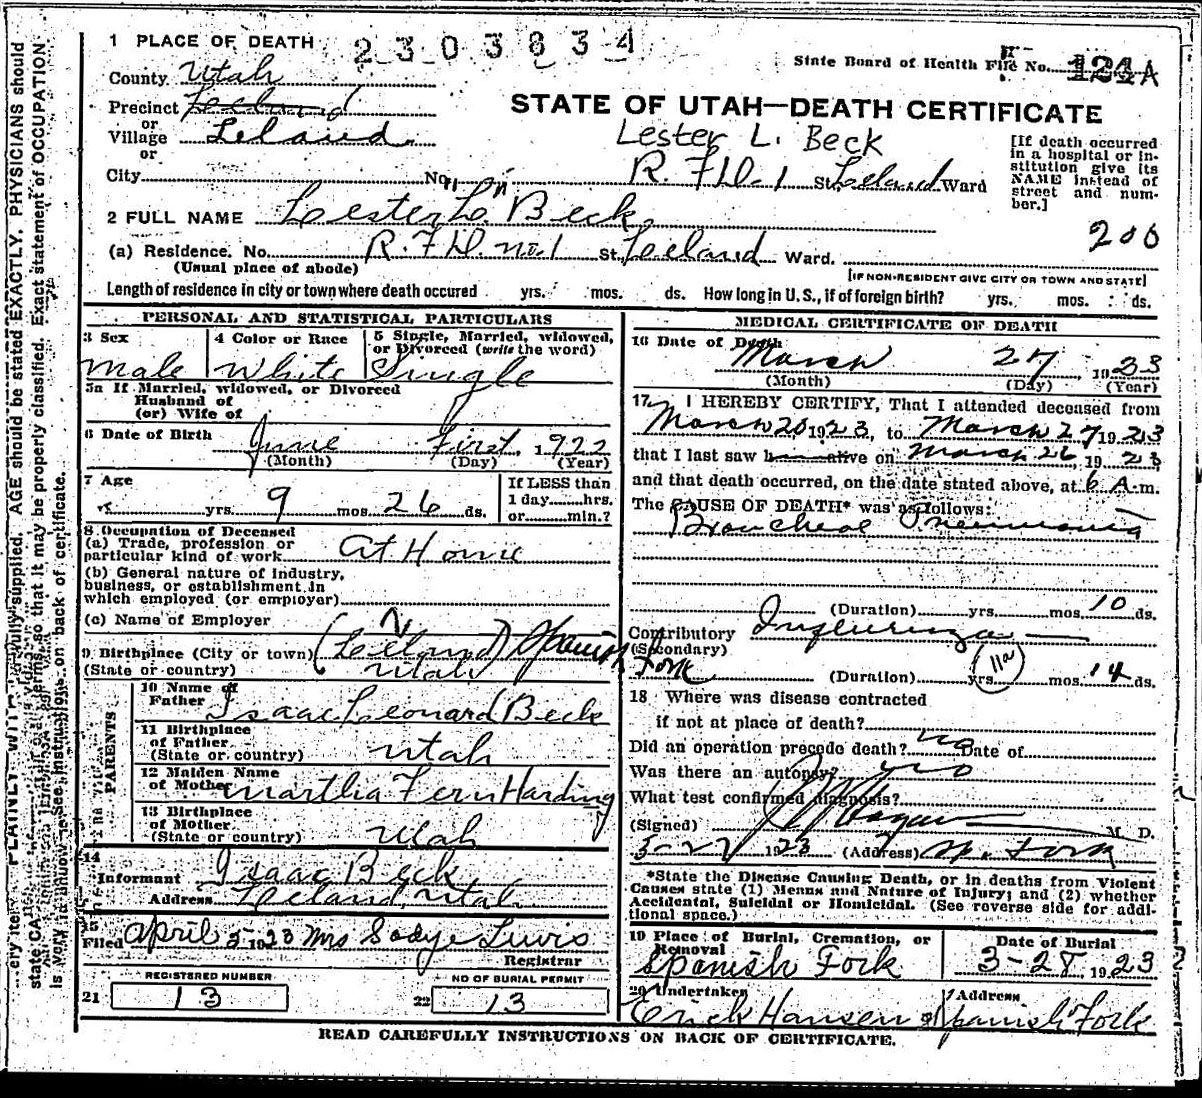 1 PLACE OF DEATH 2303834
State Board of Health File No. 124A
County Utah
Precinct Leland
STATE OF UTAH—DEATH CERTIFICATE
or
Village Leland
Lester L. Beck
or
City No. R. F. D. 1 St. Leland Ward
[If death occurred
in a hospital or in-
stitution give its
NAME instead of
street and num-
ber.]
2 FULL NAME Lester L. Beck
200
(a) Residence. No. R. F. D. no. 1 St. Leland Ward.
(Usual place of abode)
[IF NON-RESIDENT GIVE CITY OR TOWN AND STATE]
Length of residence in city or town where death occured yrs. mos. ds. How long in U. S., if of foreign birth? yrs. mos. ds.
PERSONAL AND STATISTICAL PARTICULARS
3 Sex
Male
4 Color or Race
White
5 Single, Married, widowed,
or Divorced (write the word)
Single
5a If Married, widowed, or Divorced
Husband of
(or) Wife of
6 Date of Birth June First, 1922
(Month) (Day) (Year)
7 Age
yrs. 9 mos. 26 ds.
If LESS than
1 day hrs.
or min.?
8 Occupation of Deceased
(a) Trade, profession or
particular kind of work At Home
(b) General nature of industry,
business, or establishment in
which employed (or employer)
(c) Name of Employer
9 Birthplace (City or town) (Leland) Spanish Fork
(State or country) Utah
PARENTS
10 Name of
Father Isaac Leonard Beck
11 Birthplace
of Father
(State or country) Utah
12 Maiden Name
of Mother Martha Fern Harding
13 Birthplace
of Mother
(State or country) Utah
14
Informant Isaac Beck
Address Leland, Utah
15
Filed April 5 1923 Mrs Sadye Lewis
Registrar
REGISTERED NUMBER
21 13
NO OF BURIAL PERMIT
22 13
MEDICAL CERTIFICATE OF DEATH
16 Date of Death
March 27, 1923
(Month) (Day) (Year)
17. I HEREBY CERTIFY, That I attended deceased from
March 20 1923, to March 27 1923
that I last saw h alive on March 26, 1923
and that death occurred, on the date stated above, at 6 A.m.
The CAUSE OF DEATH* was as follows:
Broncheal Pneumonia
(Duration) yrs. mos. 10 ds.
Contributory Influenza
(Secondary)
11a
(Duration) yrs. mos. 14 ds.
18 Where was disease contracted
if not at place of death?
Did an operation precede death? no Date of
Was there an autopsy? no
What test confirmed diagnosis?
(Signed) M. D.
3-27 1923 (Address) Sp. Fork
*State the Disease Causing Death, or in deaths from Violent
Causes state (1) Means and Nature of Injury; and (2) whether
Accidental, Suicidal or Homicidal. (See reverse side for addi-
tional space.)
19 Place of Burial, Cremation, or
Removal
Spanish Fork
Date of Burial
3-28, 1923
20 Undertaker
Erick Hansen
Address
Spanish Fork
READ CAREFULLY INSTRUCTIONS ON BACK OF CERTIFICATE.
supplied. AGE should be stated EXACTLY. PHYSICIANS should
so that it may be properly classified. Exact statement of OCCUPATION
on back of certificate.